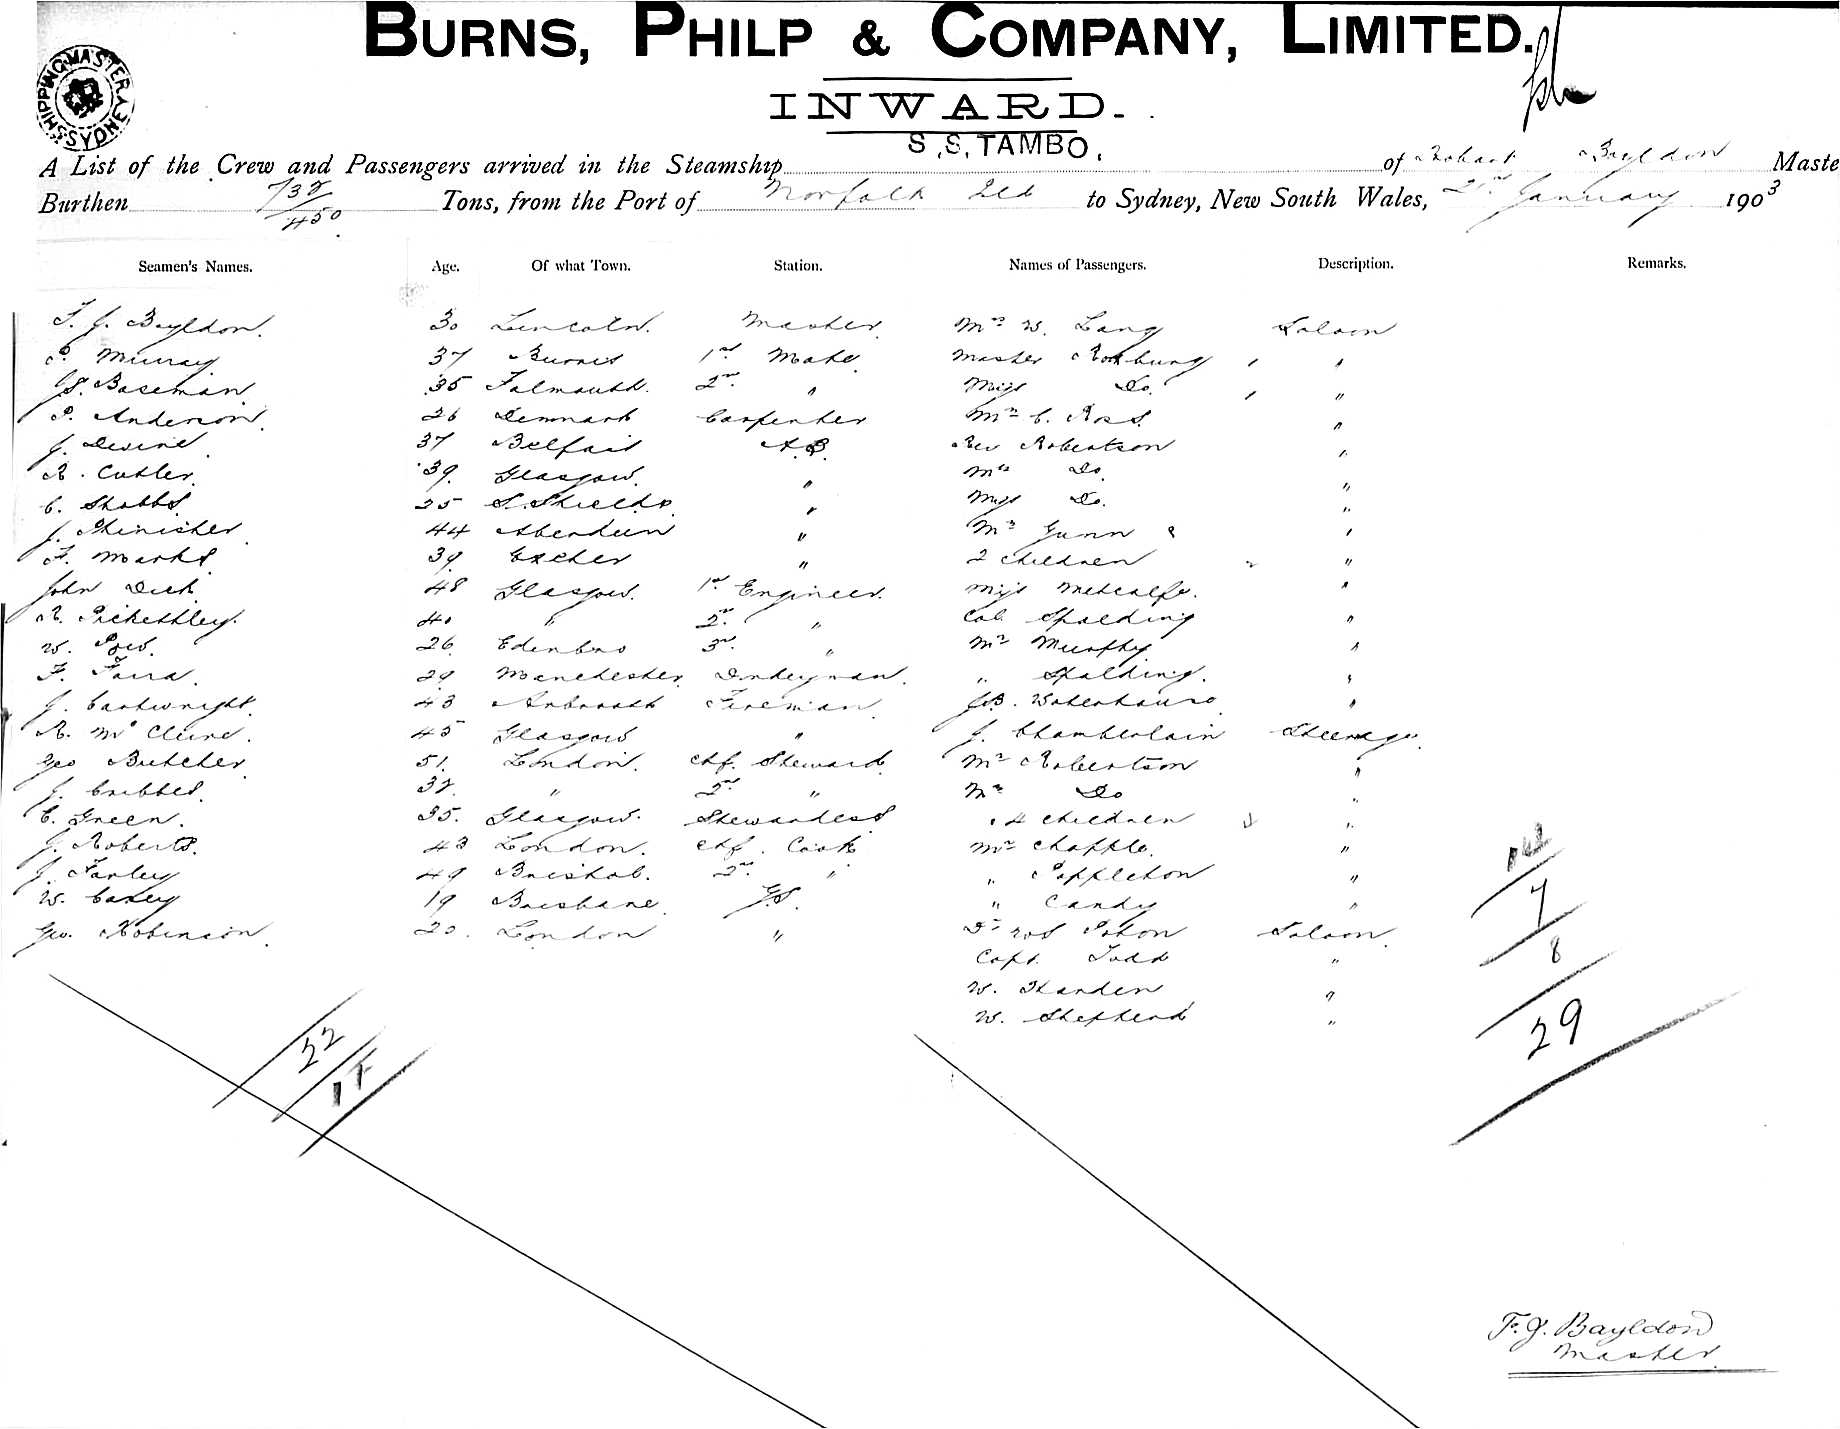 BURNS, PHILP & COMPANY, LIMITED.
SHIPPING MASTER SYDNEY
INWARD.
S.S. TAMBO.
A List of the Crew and Passengers arrived in the Steamship of Bayldon Maste
Burthen 732/450 Tons, from the Port of Norfolk Ild to Sydney, New South Wales, 21st January 1903
Seamen's Names. Age. Of what Town. Station. Names of Passengers. Description. Remarks.
F. J. Bayldon. 30 Lincoln. Master. Mrs W. Lang Saloon
P. Murray 37 1st Mate. Master Roxburg "
Baseman. 35 Falmouth. 2nd " Miss Do. "
P. Anderson. 26 Denmark Carpenter Mr C. Ross. "
J. Devine. 37 Belfast A.B. Rev Robertson "
R. Cutler. 39. Glasgow. " Mrs Do "
C. Stobbs. 25 S. Shields. " Miss Do. "
J. 44 Aberdeen " Mrs Gunn & "
F. Marks. 39. Exeter " 2 children "
John Dick. 48 Glasgow. 1st Engineer. Miss Metcalfe. "
R. Pickethley. 40 " 2nd " Col. Spalding "
W. Pow. 26. Edenbro 3rd " Mr Murphy "
F. 29 Manchester. Donkeyman. " Spalding. "
J. Cartwright. 43 Arbroath Fireman. J.B. Waterhouse "
R. McClure. 45 Glasgow " J. Chamberlain Steerage.
Geo Butcher. 51. London. chf. Steward. Mr Robertson "
J. Cribbes. 32. " 2nd " Mrs Do "
C. Green. 35. Glasgow. Stewardess 4 children "
J. Roberts. 43 London. chf. Cook Mr Chapple. "
J. Farley 49 Bristol. 2nd " " Pappleton "
W. Casey 19 Brisbane. G.S. " Candy "
Geo. Robinson. 20. London " Dr Paton Saloon.
Capt. Todd "
W. Harden "
W. Shepherd "
7
8
22
29
F. J. Bayldon
Master.